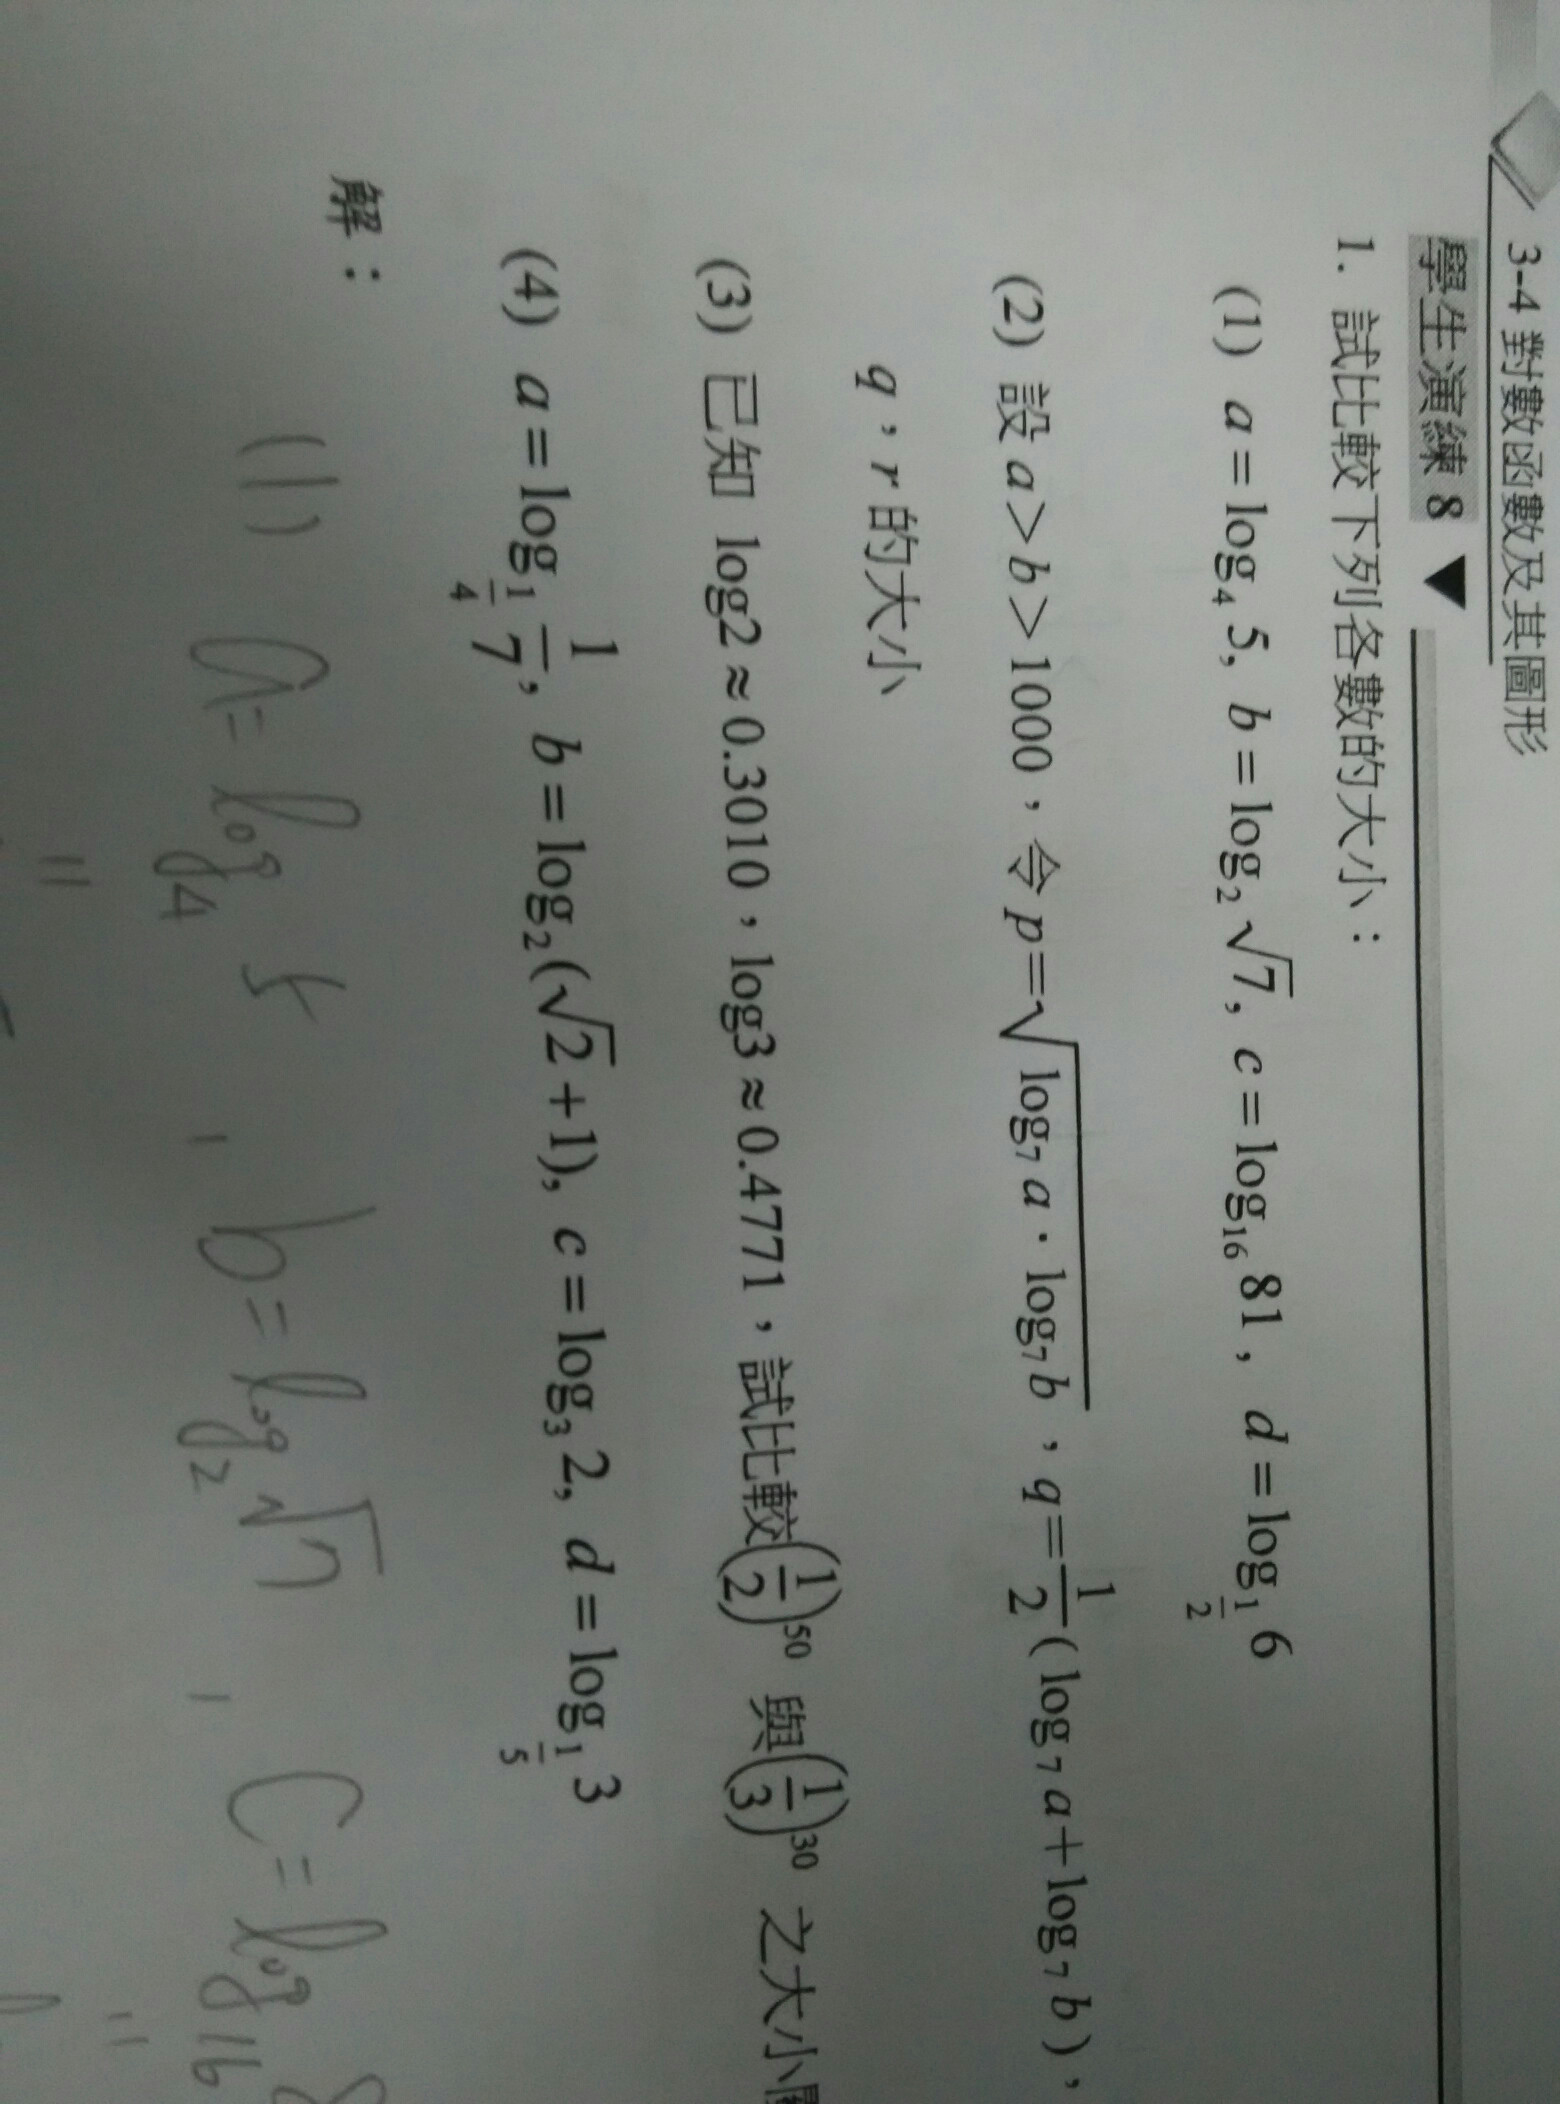 3-4 對數函數及其圖形
學生演練 8 ▼
1. 試比較下列各數的大小：
(1) a=log₄5, b=log₂√7, c=log₁₆81，d=log_{1/2}6
(2) 設 a>b>1000，令 p=√(log₇a·log₇b)，q=1/2(log₇a+log₇b)，
q，r 的大小
(3) 已知 log2≈0.3010，log3≈0.4771，試比較(1/2)⁵⁰ 與(1/3)³⁰ 之大小
(4) a=log_{1/4}1/7, b=log₂(√2+1), c=log₃2, d=log_{1/5}3
解：
(1) a=log₄5, b=log₂√7, c=log₁₆